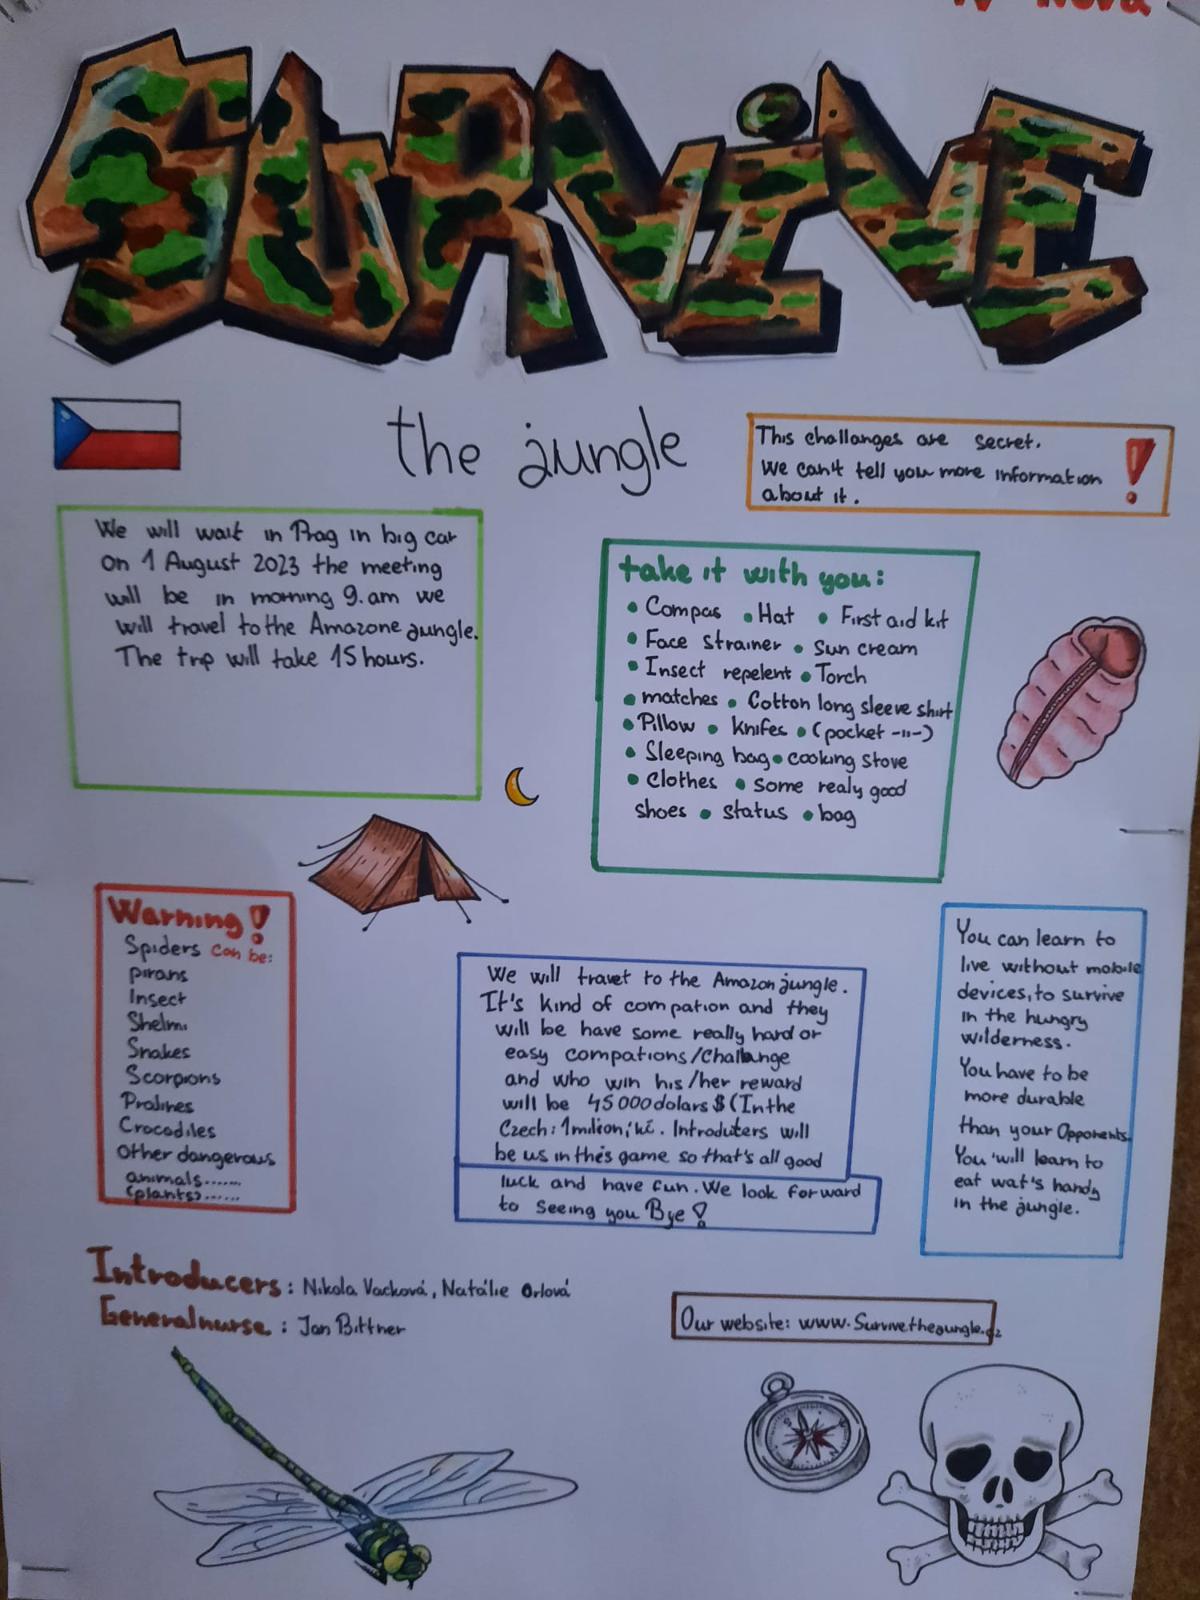 SURViVE
the jungle
This challanges are secret.
We can't tell you more information
about it.
!
We will wait in Prag in big car
on 1 August 2023 the meeting
will be in morning 9.am we
will travel to the Amazone jungle.
The trip will take 15 hours.
take it with you:
• Compas • Hat • First aid kit
• Face strainer • Sun cream
• Insect repelent • Torch
• matches • Cotton long sleeve shirt
• Pillow • knifes • (pocket -11-)
• Sleeping bag • cooking stove
• Clothes • some realy good
shoes • status • bag
Warning!
Spiders can be:
pirans
Insect
Shelmi
Snakes
Scorpions
Pralines
Crocodiles
Other dangerous
animals......
(plants)......
We will travel to the Amazon jungle.
It's kind of compation and they
will be have some really hard or
easy compations/Challange
and who win his/her reward
will be 45 000 dolars $ (In the
Czech: 1 milion,' kč. Introduters will
be us in this game so that's all good
luck and have fun. We look for ward
to seeing you Bye!
You can learn to
live without mobile
devices, to survive
in the hungry
wilderness.
You have to be
more durable
than your Opponents.
You 'will learn to
eat wat's handy
in the jungle.
Introducers: Nikola Vacková, Natálie Orlová
Generalnurse: Jan Bittner
Our website: www.Survivethejungle.cz